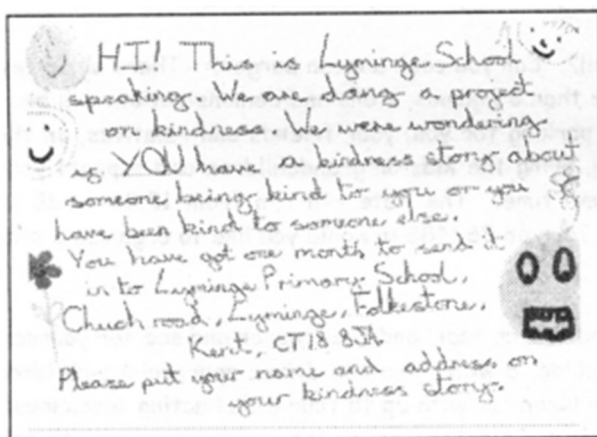 HI! This is Lyminge School
speaking. We are doing a project
on kindness. We were wondering
if YOU have a kindness story about
someone being kind to you or you
have been kind to someone else.
You have got one month to send it
in to Lyminge Primary School,
Chuch road, Lyminge, Folkestone,
Kent, CT18 8JA
Please put your name and address on
your kindness story.